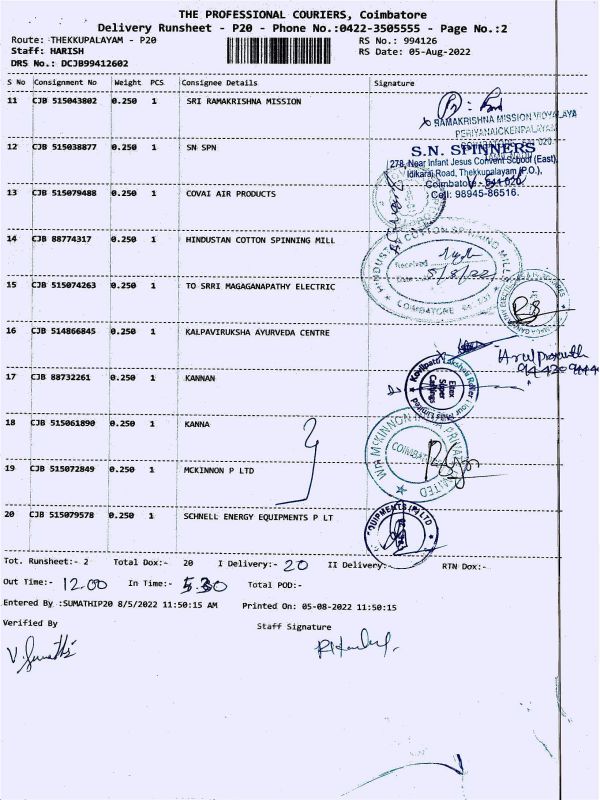 THE PROFESSIONAL COURIERS, Coimbatore
Delivery Runsheet - P20 - Phone No.:0422-3505555 - Page No.:2
Route: THEKKUPALAYAM - P20 RS No.: 994126
Staff: HARISH RS Date: 05-Aug-2022
DRS No.: DCJB99412602
S No Consignment No Weight PCS Consignee Details Signature
11 CJB 515043802 0.250 1 SRI RAMAKRISHNA MISSION
RAMAKRISHNA MISSION VIDYALAYA
PERIYANAICKENPALAYAM
12 CJB 515038877 0.250 1 SN SPN
S.N. SPINNERS
278, Near Infant Jesus Convent School (East),
Idikarai Road, Thekkupalayam (P.O.),
Coimbatore - 641 020.
Cell: 98945-86516.
13 CJB 515079488 0.250 1 COVAI AIR PRODUCTS
14 CJB 88774317 0.250 1 HINDUSTAN COTTON SPINNING MILL
HINDUSTAN COTTON SPINNING MILL
Received
5/8/22
COIMBATORE
15 CJB 515074263 0.250 1 TO SRRI MAGAGANAPATHY ELECTRIC
16 CJB 514866845 0.250 1 KALPAVIRUKSHA AYURVEDA CENTRE
17 CJB 88732261 0.250 1 KANNAN
Kovilpatti Lakshmi Roller Flour Mills Limited
18 CJB 515061890 0.250 1 KANNA
19 CJB 515072849 0.250 1 MCKINNON P LTD
20 CJB 515079578 0.250 1 SCHNELL ENERGY EQUIPMENTS P LT
EQUIPMENTS (P) LTD
Tot. Runsheet:- 2 Total Dox:- 20 I Delivery:- 20 II Delivery:- RTN Dox:-
Out Time:- 12.00 In Time:- 5.30 Total POD:-
Entered By :SUMATHIP20 8/5/2022 11:50:15 AM Printed On: 05-08-2022 11:50:15
Verified By Staff Signature
V. Sumathi